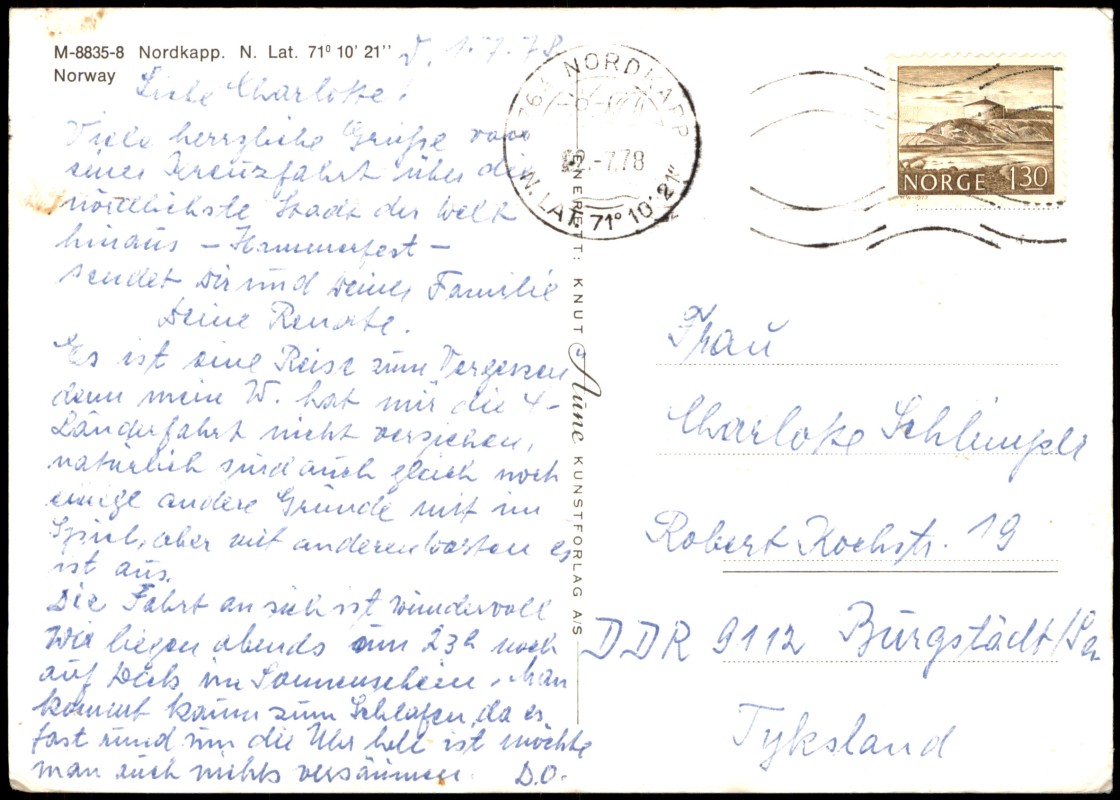 M-8835-8 Nordkapp. N. Lat. 71⁰ 10' 21''
Norway
D. 1.7.78
Liebe Charlotte!
Viele herzliche Grüße von
einer Kreuzfahrt über die
nördlichste Stadt der Welt
hinaus – Hammerfest –
sendet Dir und Deiner Familie
Deine Renate.
Es ist eine Reise zum Vergessen
denn mein W. hat mir die 4-
Länderfahrt nicht verziehen,
natürlich sind auch gleich noch
einige andere Gründe mit im
Spiel, aber mit anderen Worten es
ist aus.
Die Fahrt an sich ist wundervoll
Wir liegen abends um 23h noch
auf Deck im Sonnenschein. Man
kommt kaum zum Schlafen, da es
fast rund um die Uhr hell ist möchte
man auch nichts versäumen. D.O.
ENERETT: KNUT Aune KUNSTFORLAG A/S
NORDKAPP
-2.-7.78
N. LAT. 71° 10' 21"
NORGE 130
Frau
Charlotte Schlimper
Robert Kochstr. 19
DDR 9112 Burgstädt/Sa
Tyksland